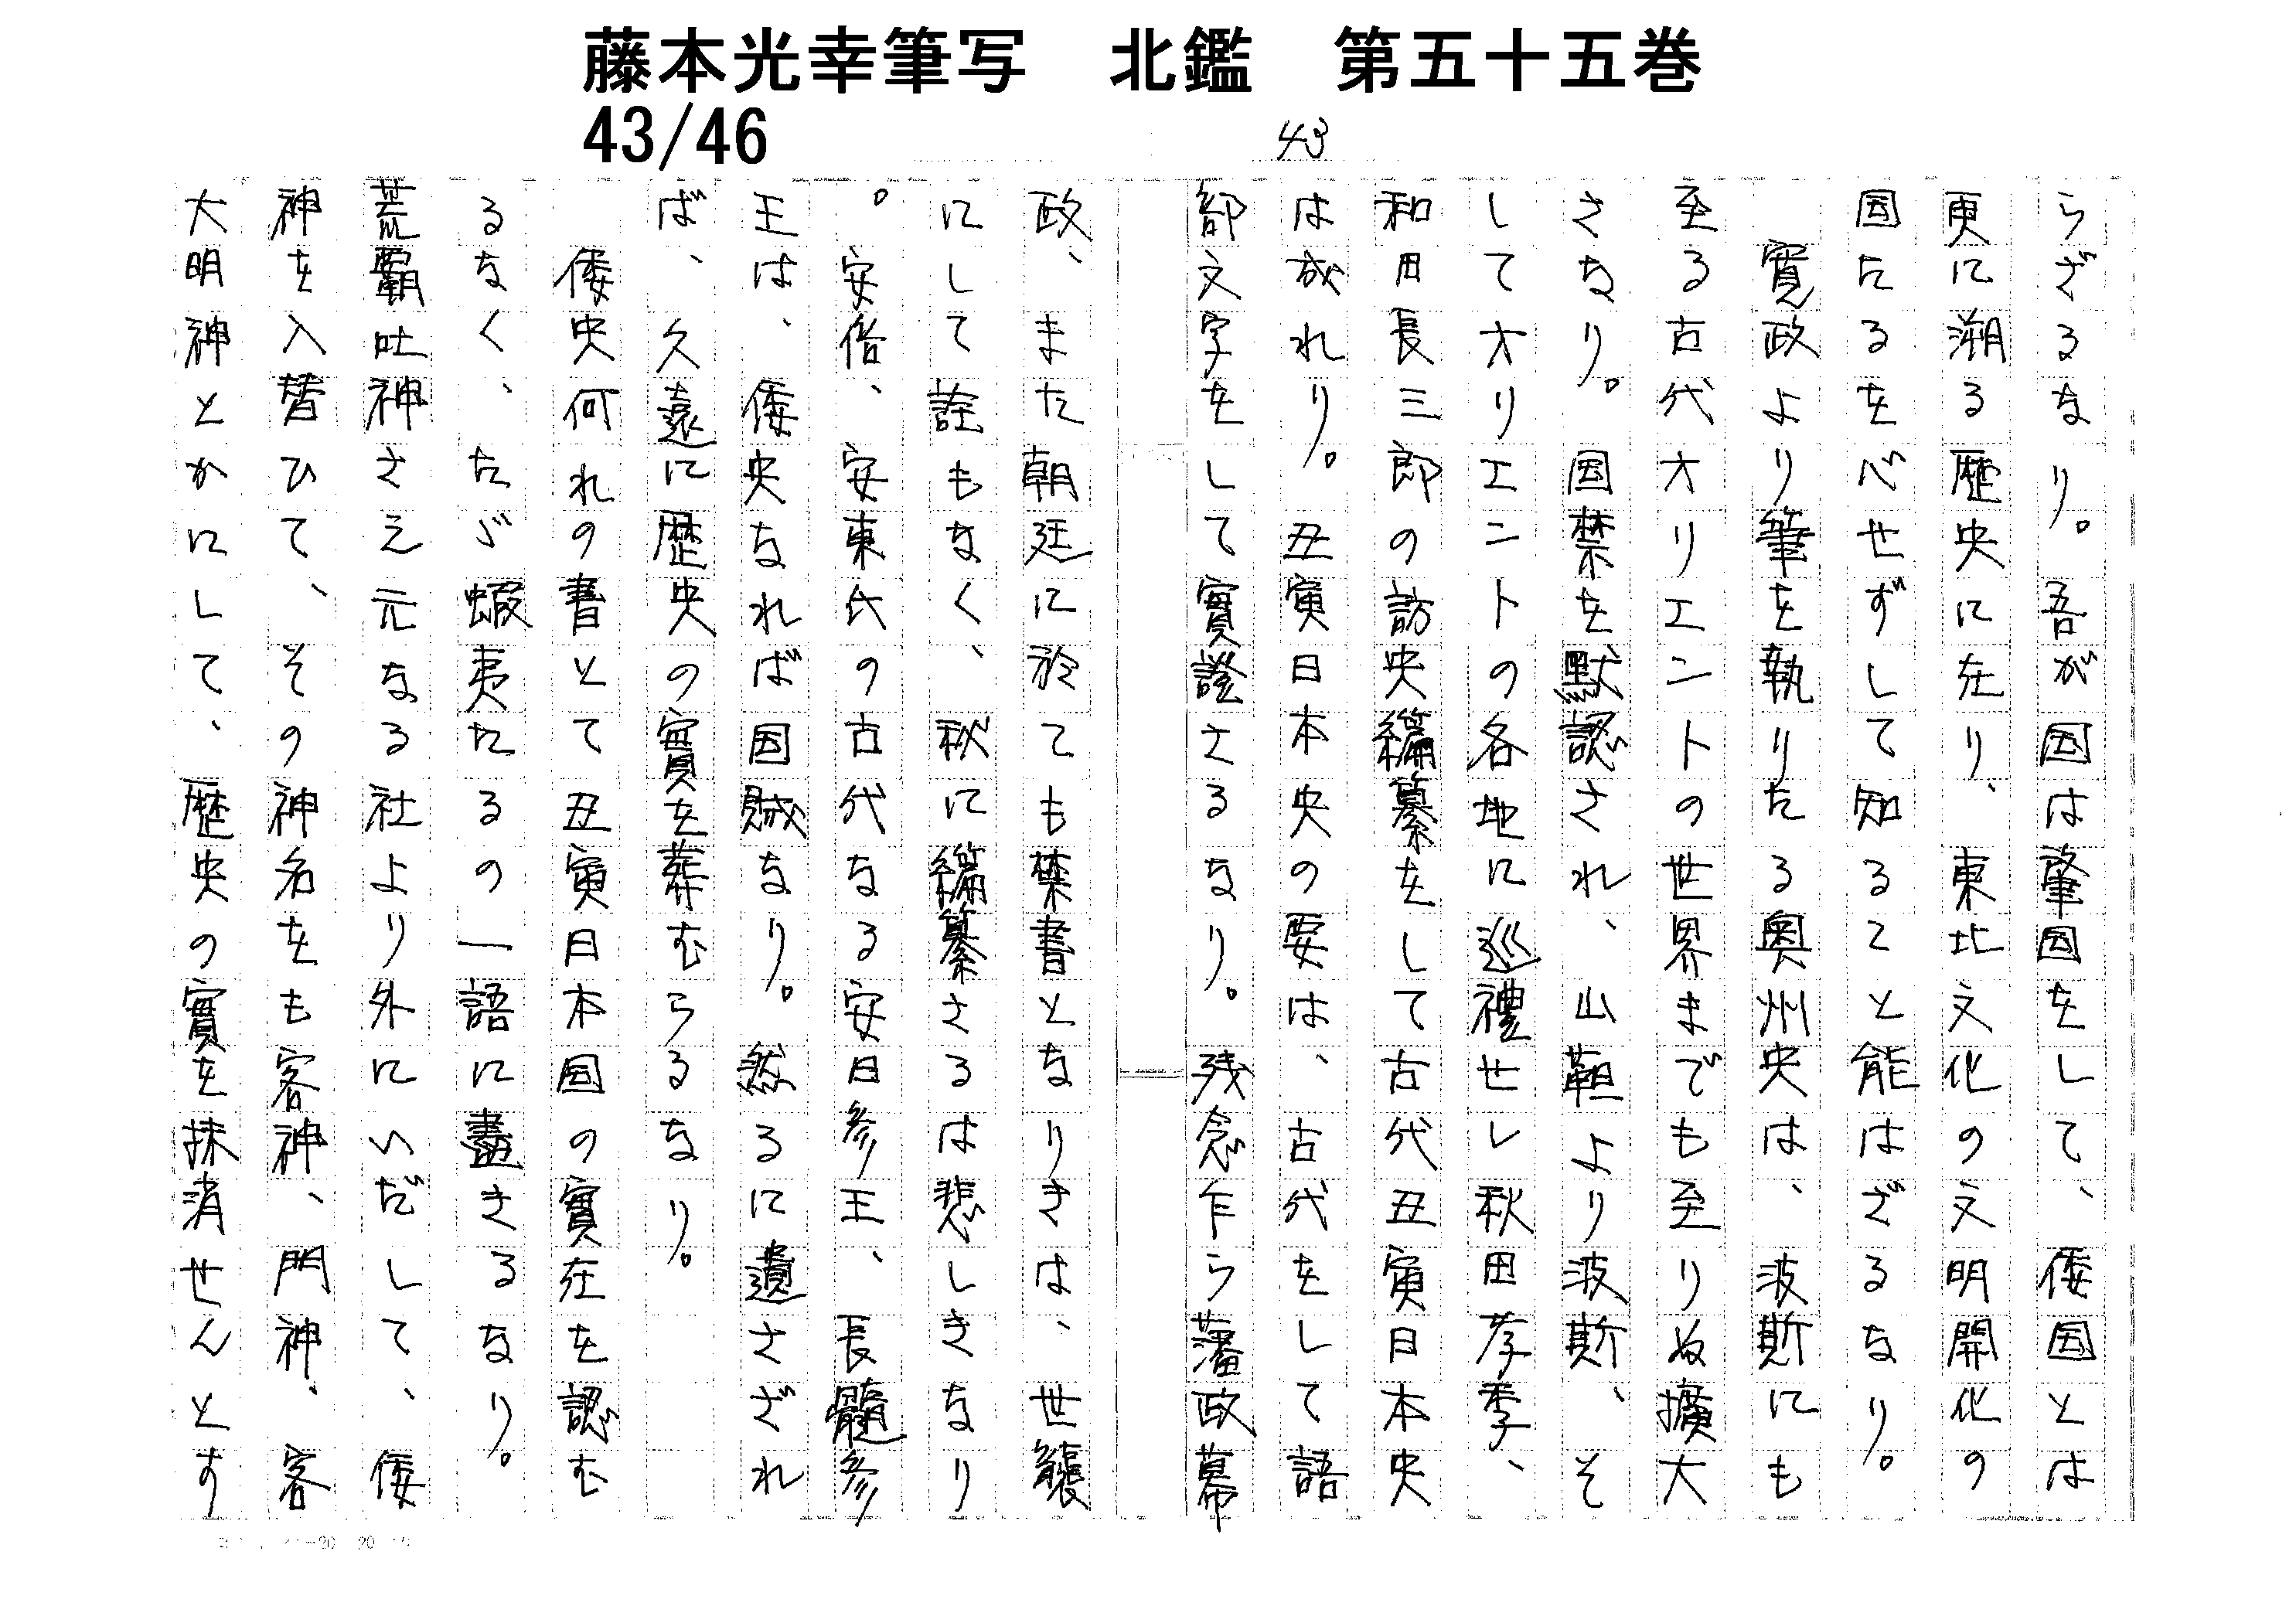 藤本光幸筆写　北鑑　第五十五巻
43/46
43
らざるなり。吾が国は肇国をして、倭国とは
更に溯る歴史に在り、東北文化の文明開化の
国たるを心せずして知ること能はざるなり。
寛政より筆を執りたる奥州史は、波斯にも
至る古代オリエントの世界までも至りぬ擴大
さなり。国禁を默認され、山靼より波斯、そ
してオリエントの各地に巡禮せし秋田孝季、
和田長三郎の訪史編纂をして古代丑寅日本史
は成れり。丑寅日本史の要は、古代をして語
部文字をして實證さるなり。残念乍ら藩政幕
政、また朝廷に於ても禁書となりきは、世襲
にして詮もなく、秋に編纂さるは悲しきなり
。安倍、安東氏の古代なる安日彦王、長髄彦
王は、倭史なれば国賊なり。然るに遺さざれ
ば、久遠に歴史の實を葬むらるなり。
倭史何れの書とて丑寅日本国の實在を認む
るなく、たゞ蝦夷たるの一語に盡きるなり。
荒覇吐神さえ元なる社より外にいだして、倭
神を入替ひて、その神名をも客神、門神、客
大明神とかにして、歴史の實を抹消せんとす